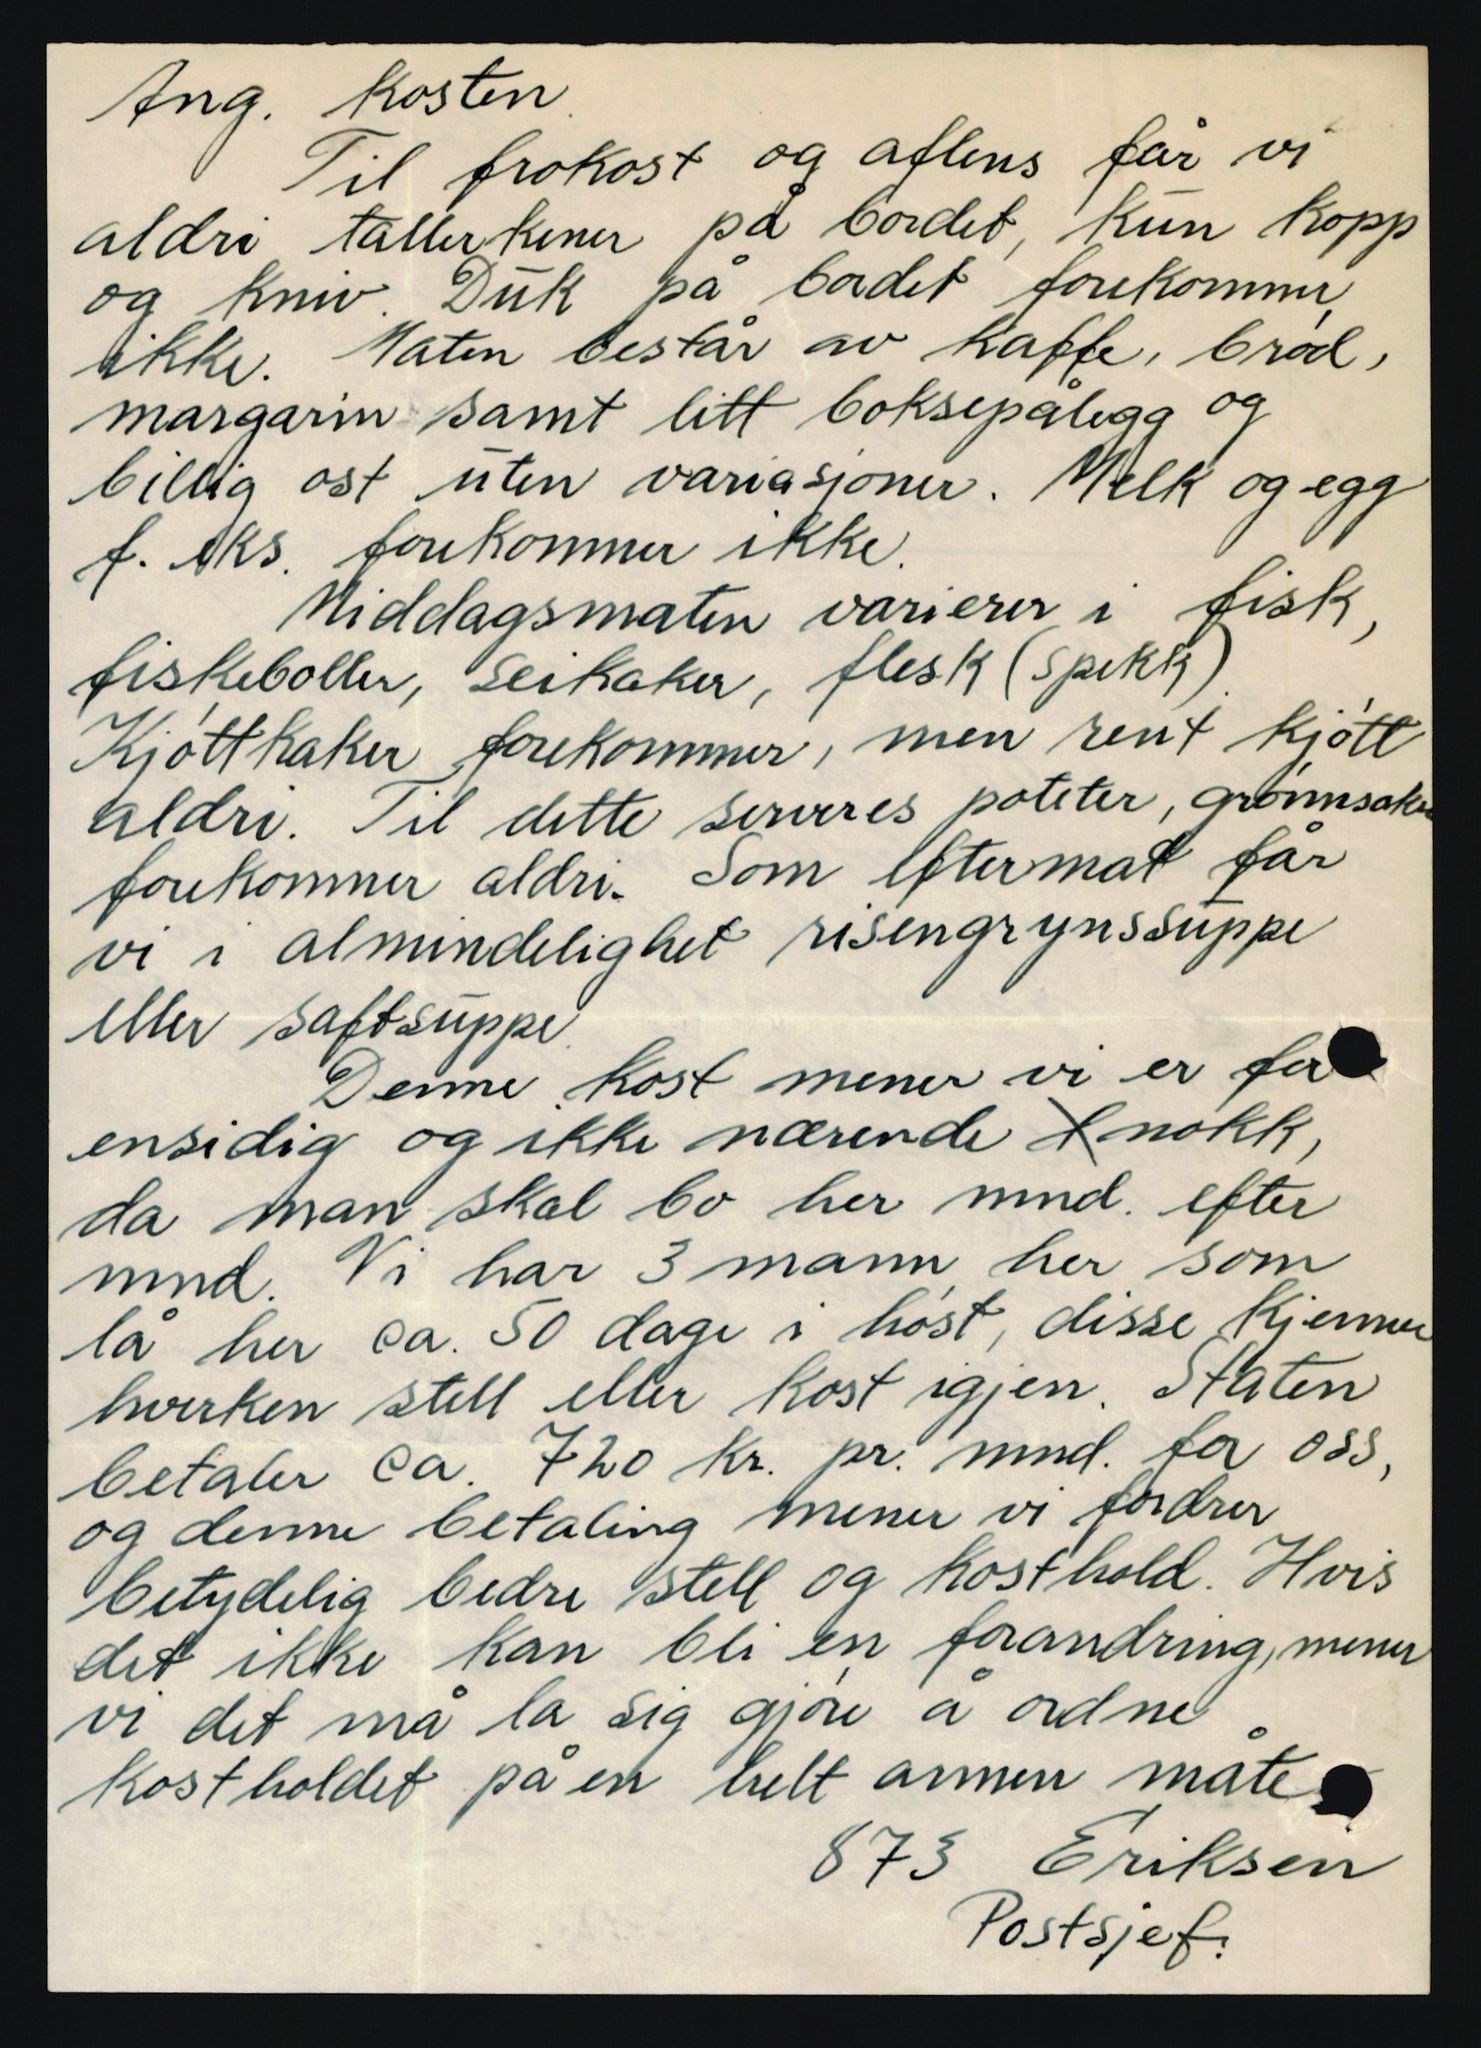 Ang. Kosten.
Til frokost og aftens får vi
aldri tallerkener på bordet, kun kopp
og kniv. Duk på bordet forekommer
ikke. Maten består av kaffe, brød,
margarin samt litt boksepålegg og
billig ost uten variasjoner. Melk og egg
f. eks. forekommer ikke.
Middagsmaten varierer i fisk,
fiskeboller, seikaker, flesk (spekk).
Kjøttkaker forekommer, men rent kjøtt
aldri. Til dette serveres poteter, grønnsaker
forekommer aldri. Som eftermat får
vi i almindelighet risengrynssuppe
eller saftsuppe.
Denne kost mener vi er for
ensidig og ikke nærende nokk,
da man skal bo her mnd. efter
mnd. Vi har 3 mann her som
lå her ca. 50 dage i høst, disse kjenner
hverken stell eller kost igjen. Staten
betaler ca. 720 kr. pr. mnd. for oss,
og denne betaling mener vi fordrer
betydelig bedre stell og kosthold. Hvis
det ikke kan bli en forandring, mener
vi det må la sig gjøre å ordne
kostholdet på en helt annen måte.
873 Eriksen
Postsjef.